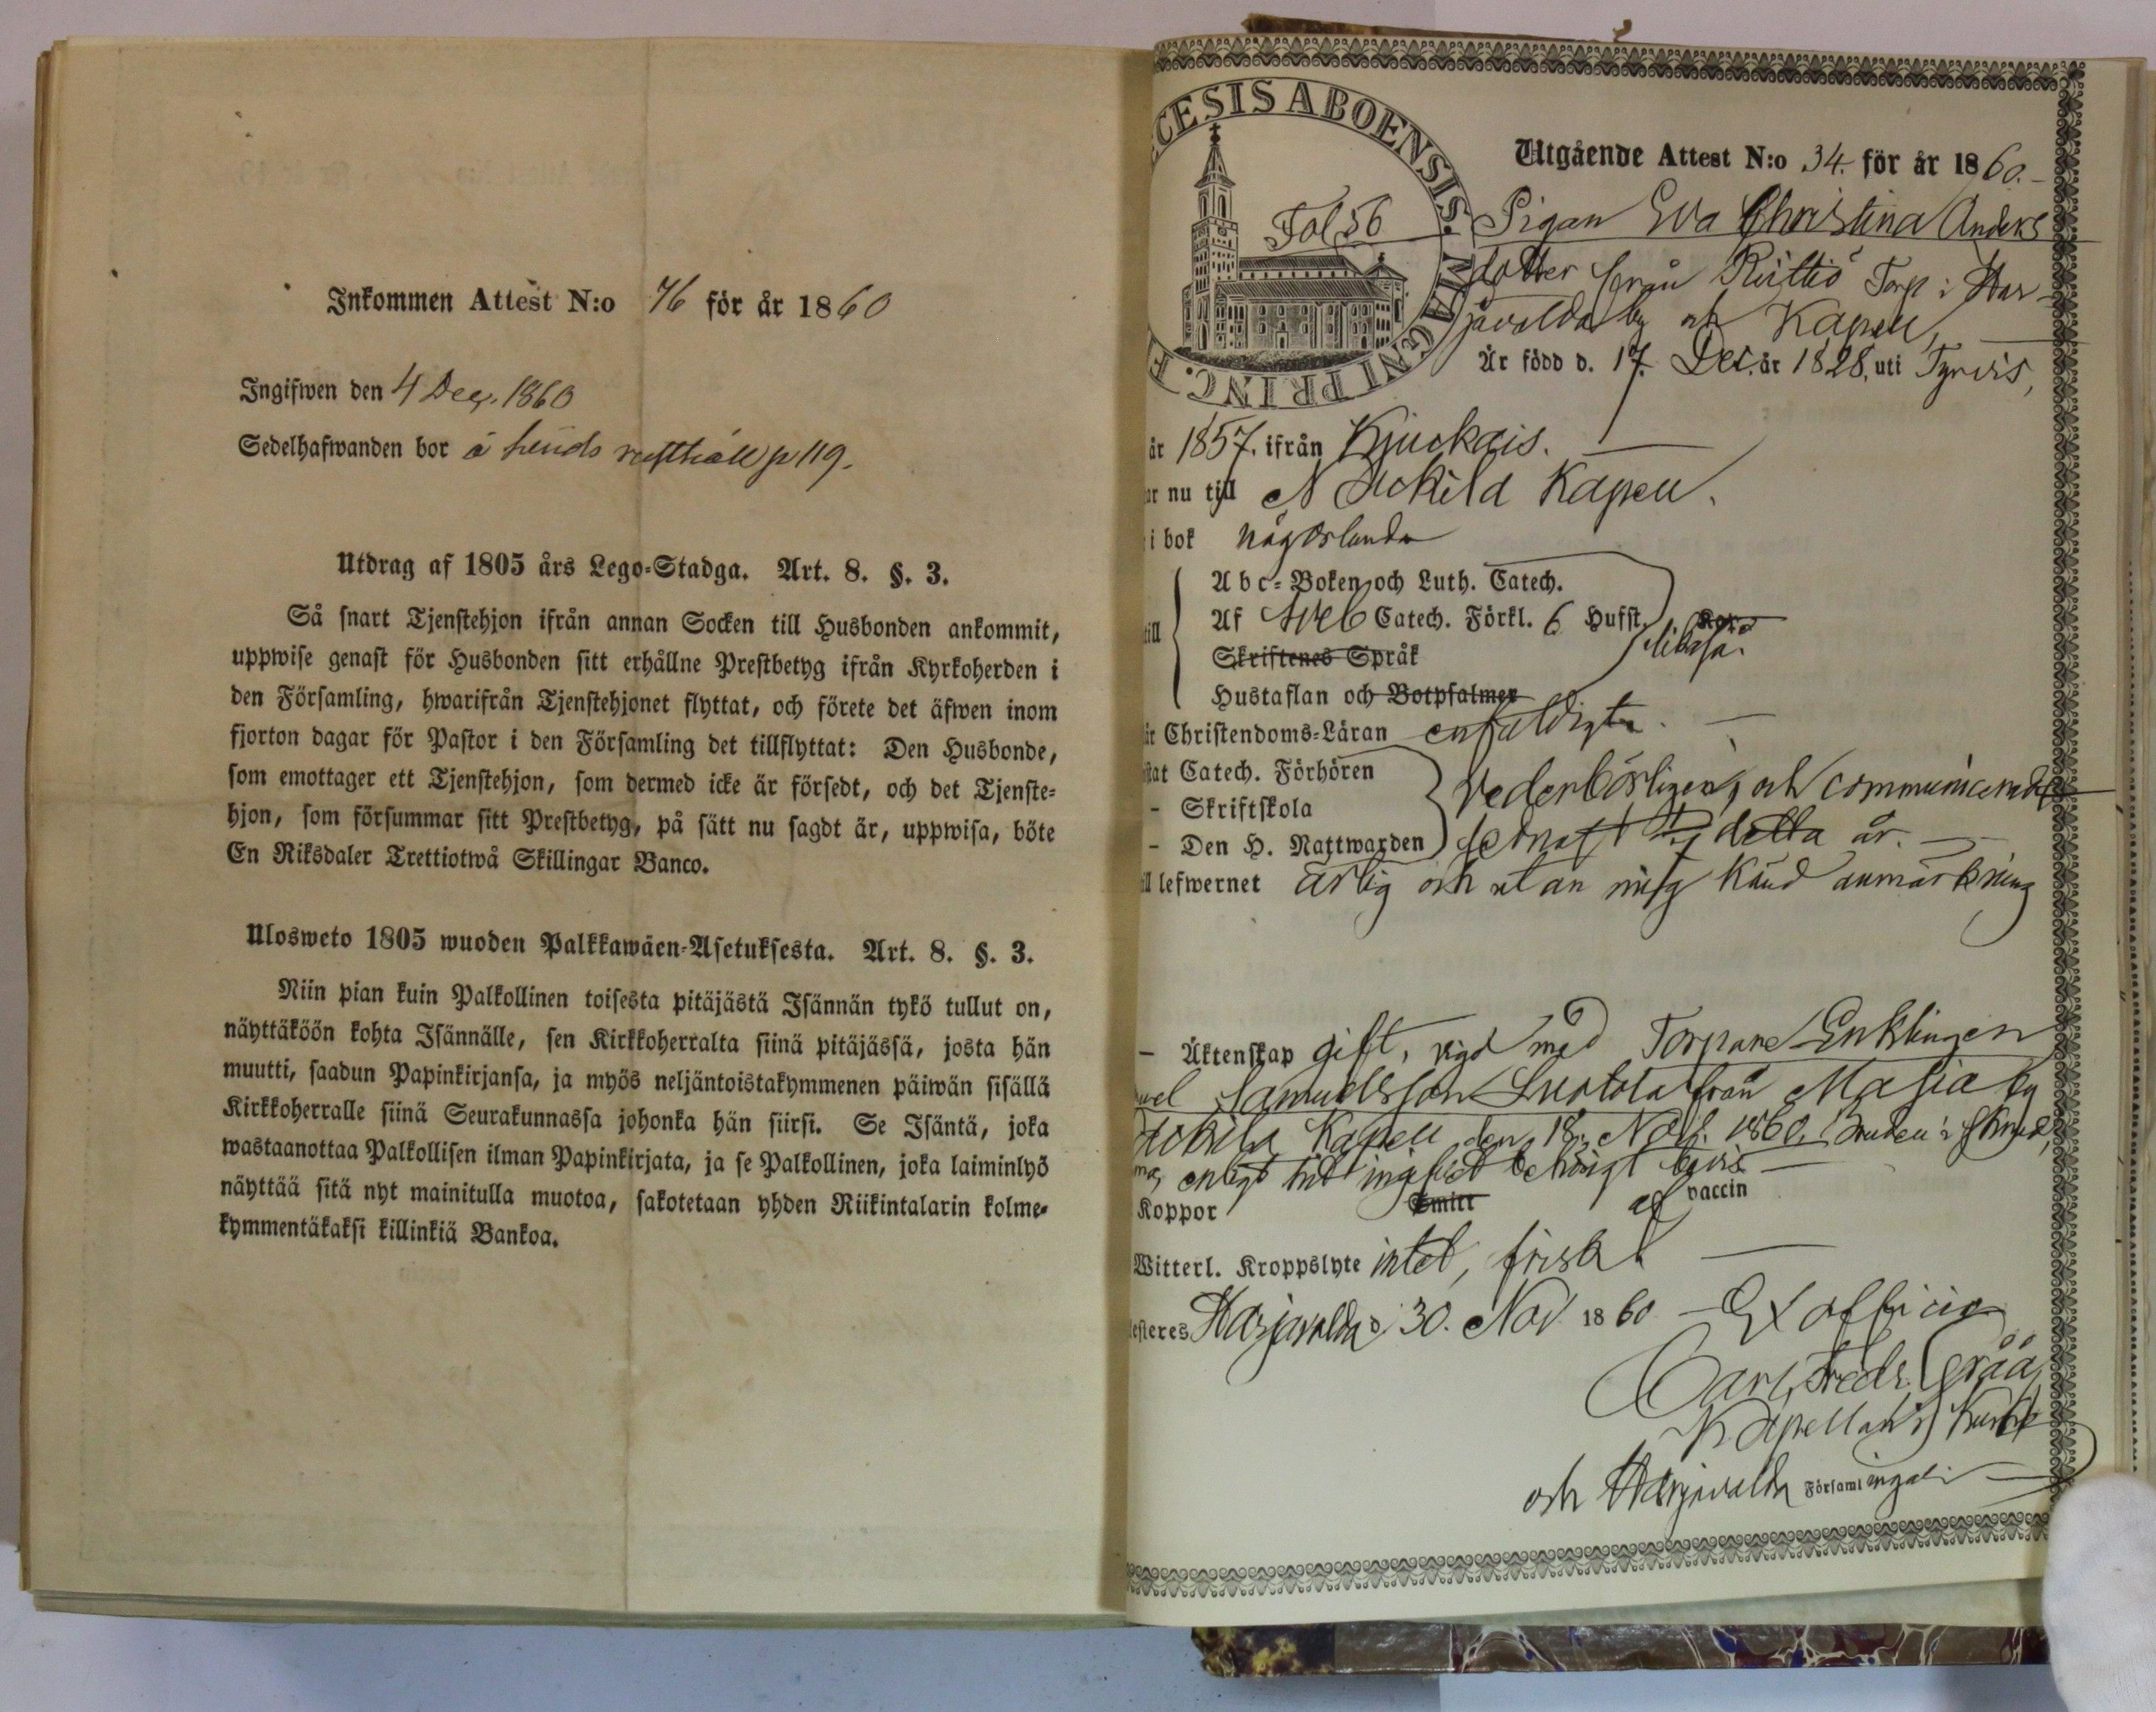 Inkommen Attest N:o 76 för år 1860
Ingifwen den 4 Dec. 1860
Sedelhafwanden bor å rusthåll p 119.
Utdrag af 1805 års Lego-Stadga. Art. 8. §. 3.
Så snart Tjenstehjon ifrån annan Socken till Husbonden ankommit,
uppwise genast för Husbonden sitt erhållne Prestbetyg ifrån Kyrkoherden i
den Församling, hwarifrån Tjenstehjonet flyttat, och förete det äfwen inom
fjorton dagar för Pastor i den Församling det tillflyttat: Den Husbonde,
som emottager ett Tjenstehjon, som dermed icke är försedt, och det Tjenste-
hjon, som försummar sitt Prestbetyg, på sätt nu sagdt är, uppwisa, böte
En Riksdaler Trettiotwå Skillingar Banco.
Ulosweto 1805 wuoden Palkkawäen-Asetuksesta. Art. 8. §. 3.
Niin pian kuin Palkollinen toisesta pitäjästä Isännän tykö tullut on,
näyttäköön kohta Isännälle, sen Kirkkoherralta siinä pitäjässä, josta hän
muutti, saadun Papinkirjansa, ja myös neljäntoistakymmenen päiwän sisällä
Kirkkoherralle siinä Seurakunnassa johonka hän siirsi. Se Isäntä, joka
wastaanottaa Palkollisen ilman Papinkirjata, ja se Palkollinen, joka laiminlyö
näyttää sitä nyt mainitulla muotoa, sakotetaan yhden Riikintalarin kolme-
kymmentäkaksi killinkiä Bankoa.
CESIS ABOENSIS.
MAGNI PRINC. F
Fol 56
Utgående Attest N:o 34. för år 1860.
Pigan Eva Christina Anders
dotter från Torp i Har-
javalda by och Kapell,
Är född d. 17. Dec. år 1828, uti Tyrvis,
år 1857. ifrån Kjuckais.
ar nu till Nackila Kapell.
i bok någorlunda
till
Abc-Boken och Luth. Catech.
Af Sveb Catech. Förkl. 6 Hufst.
Skriftenes Språk
Hustaflan och Botpsalmer
är Christendoms-Läran enfaldigt.
stat Catech. Förhören
- Skriftskola
- Den H. Nattwarden
vederbörligen, och communicerade
sednast detta år.
ll lefwernet ärlig och utan mig känd anmärkning
- Äktenskap gift, vigd med Torpare Enklingen
Samuelsson från Masia by
Nackila Kapell den 18. Nov. 1860.
enligt hit ingifvet behörigt bevis
Koppor Smitt af vaccin
Witterl. Kroppslyte intet, frisk.
esteres Harjavalda d. 30. Nov 1860 Ex officio
Carl Fredr. Gråå
Kapellan i
och Harjavalda Församlingar